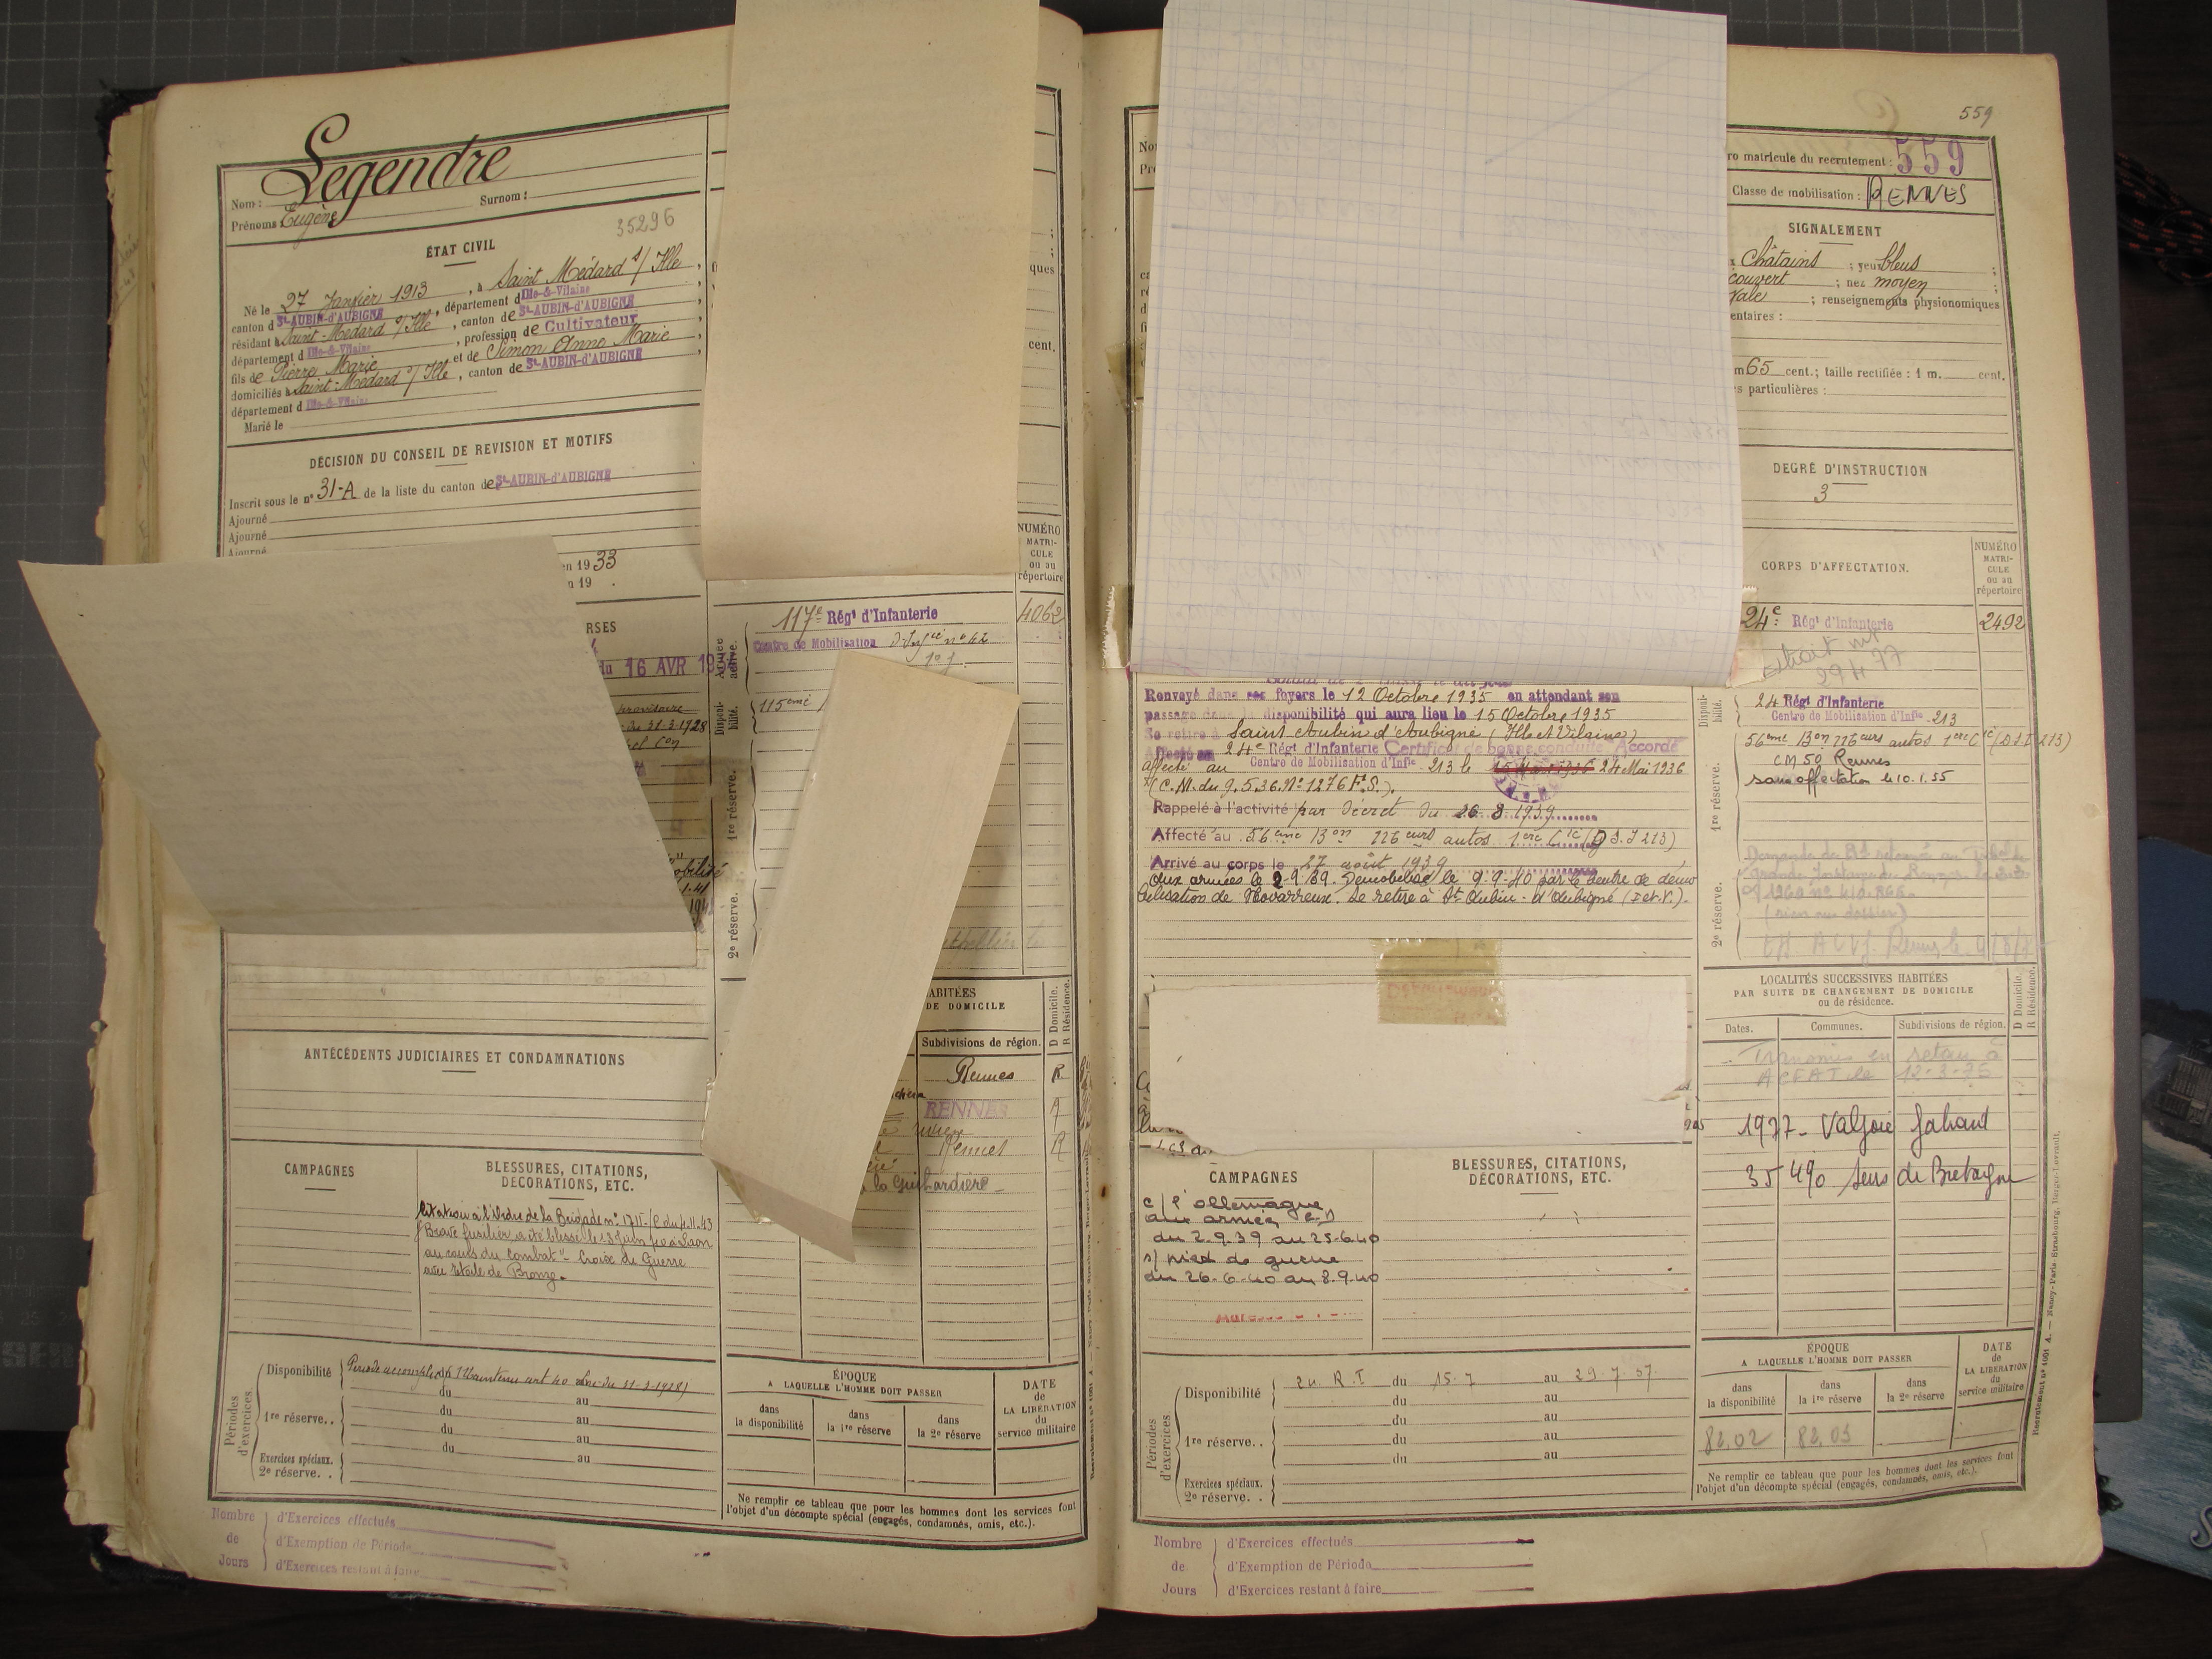 Legendre
Nom :
Surnom :
Prénoms : Eugène
35296
ÉTAT CIVIL
Né le 27 Janvier 1913, à Saint Médard s/ Ille,
canton de St-AUBIN-d'AUBIGNÉ, département d'Ille-&-Vilaine,
résidant à Saint-Médard s/ Ille, canton de St-AUBIN-d'AUBIGNÉ,
département d'Ille-&-Vilaine, profession de Cultivateur,
fils de Pierre Marie et de Simon Anne Marie,
domiciliés à Saint-Médard s/ Ille, canton de St-AUBIN-d'AUBIGNÉ,
département d'Ille-&-Vilaine
Marié le
DÉCISION DU CONSEIL DE REVISION ET MOTIFS
Inscrit sous le n° 31-A de la liste du canton de St-AUBIN-d'AUBIGNÉ
Ajourné
Ajourné
Ajourné
en 1933
n 19 .
RSES
du 16 AVR 19
provisoire
du 31-3-1928
ANTÉCÉDENTS JUDICIAIRES ET CONDAMNATIONS
CAMPAGNES
BLESSURES, CITATIONS,
DÉCORATIONS, ETC.
Citation à l'Ordre de la Brigade n° 1715/C du 4-11-43
"Brave fusilier a été blessé le 13 Juin 40 à Laon
au cours du combat" Croix de Guerre
avec étoile de Bronze.
Périodes d'exercices
Disponibilité
Période accomplie (Maintenu art 40 Loi du 31-3-1928)
du au
1re réserve..
du au
du au
du au
Exercices spéciaux.
2e réserve. .
Nombre de Jours
d'Exercices effectués
d'Exemption de Période
d'Exercices restant à faire
ques
cent.
NUMÉRO
MATRI-
CULE
ou au
répertoire
Armée active.
117e Régt d'Infanterie
4062
Centre de Mobilisation d'Infie n° 42
Disponibilité.
115eme
1re réserve.
2e réserve.
ABITÉES
DE DOMICILE
Subdivisions de région.
D Domicile.
R Résidence.
Rennes R
RENNES
Rennes R
la Guihardière
ÉPOQUE
A LAQUELLE L'HOMME DOIT PASSER
dans
la disponibilité
dans
la 1re réserve
dans
la 2e réserve
DATE
de
LA LIBÉRATION
du
service militaire
Ne remplir ce tableau que pour les hommes dont les services font
l'objet d'un décompte spécial (engagés, condamnés, omis, etc.).
559
ro matricule du recrutement : 559
Classe de mobilisation : RENNES
SIGNALEMENT
Châtains ; yeux bleus ;
couvert ; nez moyen ;
vale ; renseignements physionomiques
entaires :
m 65 cent.; taille rectifiée : 1 m. cent.
s particulières :
DEGRÉ D'INSTRUCTION
3
CORPS D'AFFECTATION.
NUMÉRO
MATRI-
CULE
ou au
répertoire
24e Régt d'Infanterie
2492
Renvoyé dans ses foyers le 12 Octobre 1935 en attendant son
passage dans la disponibilité qui aura lieu le 15 Octobre 1935
Se retire à Saint Aubin d'Aubigné (Ille et Vilaine)
Affecté au 24e Régt d'Infanterie Certificat de bonne conduite Accordé
affecté au Centre de Mobilisation d'Infie 213 le 24 Mai 1936
(C.M. du 9.5.36. N° 1276 F.S.).
Rappelé à l'activité par Décret du 26.8.1939
Affecté au 56eme Bon Mteurs autos 1ere Cie (D.S.I 213)
Arrivé au corps le 27 août 1939
Aux armées le 2-9/39. Démobilisé le 9-9-40 par le Centre de démo
bilisation de Navarrenx. Se retire à St Aubin-d'Aubigné (I et V.).
Disponibilité.
24 Régt d'Infanterie
Centre de Mobilisation d'Infie 213
56eme Bon Mteurs autos 1ere Cie (D.S.I 213)
CM 50 Rennes
sans affectation le 10.1.55
1re réserve.
2e réserve.
LOCALITÉS SUCCESSIVES HABITÉES
PAR SUITE DE CHANGEMENT DE DOMICILE
ou de résidence.
D Domicile.
R Résidence.
Dates.
Communes.
Subdivisions de région.
Transmis en retour à
ACFAT le 12-3-75
1977- Valjoie Gahard
35 490 Sens de Bretagne
CAMPAGNES
BLESSURES, CITATIONS,
DÉCORATIONS, ETC.
c/ l'Allemagne
aux armées
du 2.9.39 au 25.6.40
s/ pied de guerre
du 26-6-40 au 8.9.40
Périodes d'exercices
Disponibilité
24. R.I du 15.7 au 29.7.37.
du au
1re réserve..
du au
du au
du au
Exercices spéciaux.
2e réserve. .
ÉPOQUE
A LAQUELLE L'HOMME DOIT PASSER
dans
la disponibilité
dans
la 1re réserve
dans
la 2e réserve
DATE
de
LA LIBÉRATION
du
service militaire
82,02
82,03
Ne remplir ce tableau que pour les hommes dont les services font
l'objet d'un décompte spécial (engagés, condamnés, omis, etc.).
Nombre de Jours
d'Exercices effectués
d'Exemption de Période
d'Exercices restant à faire